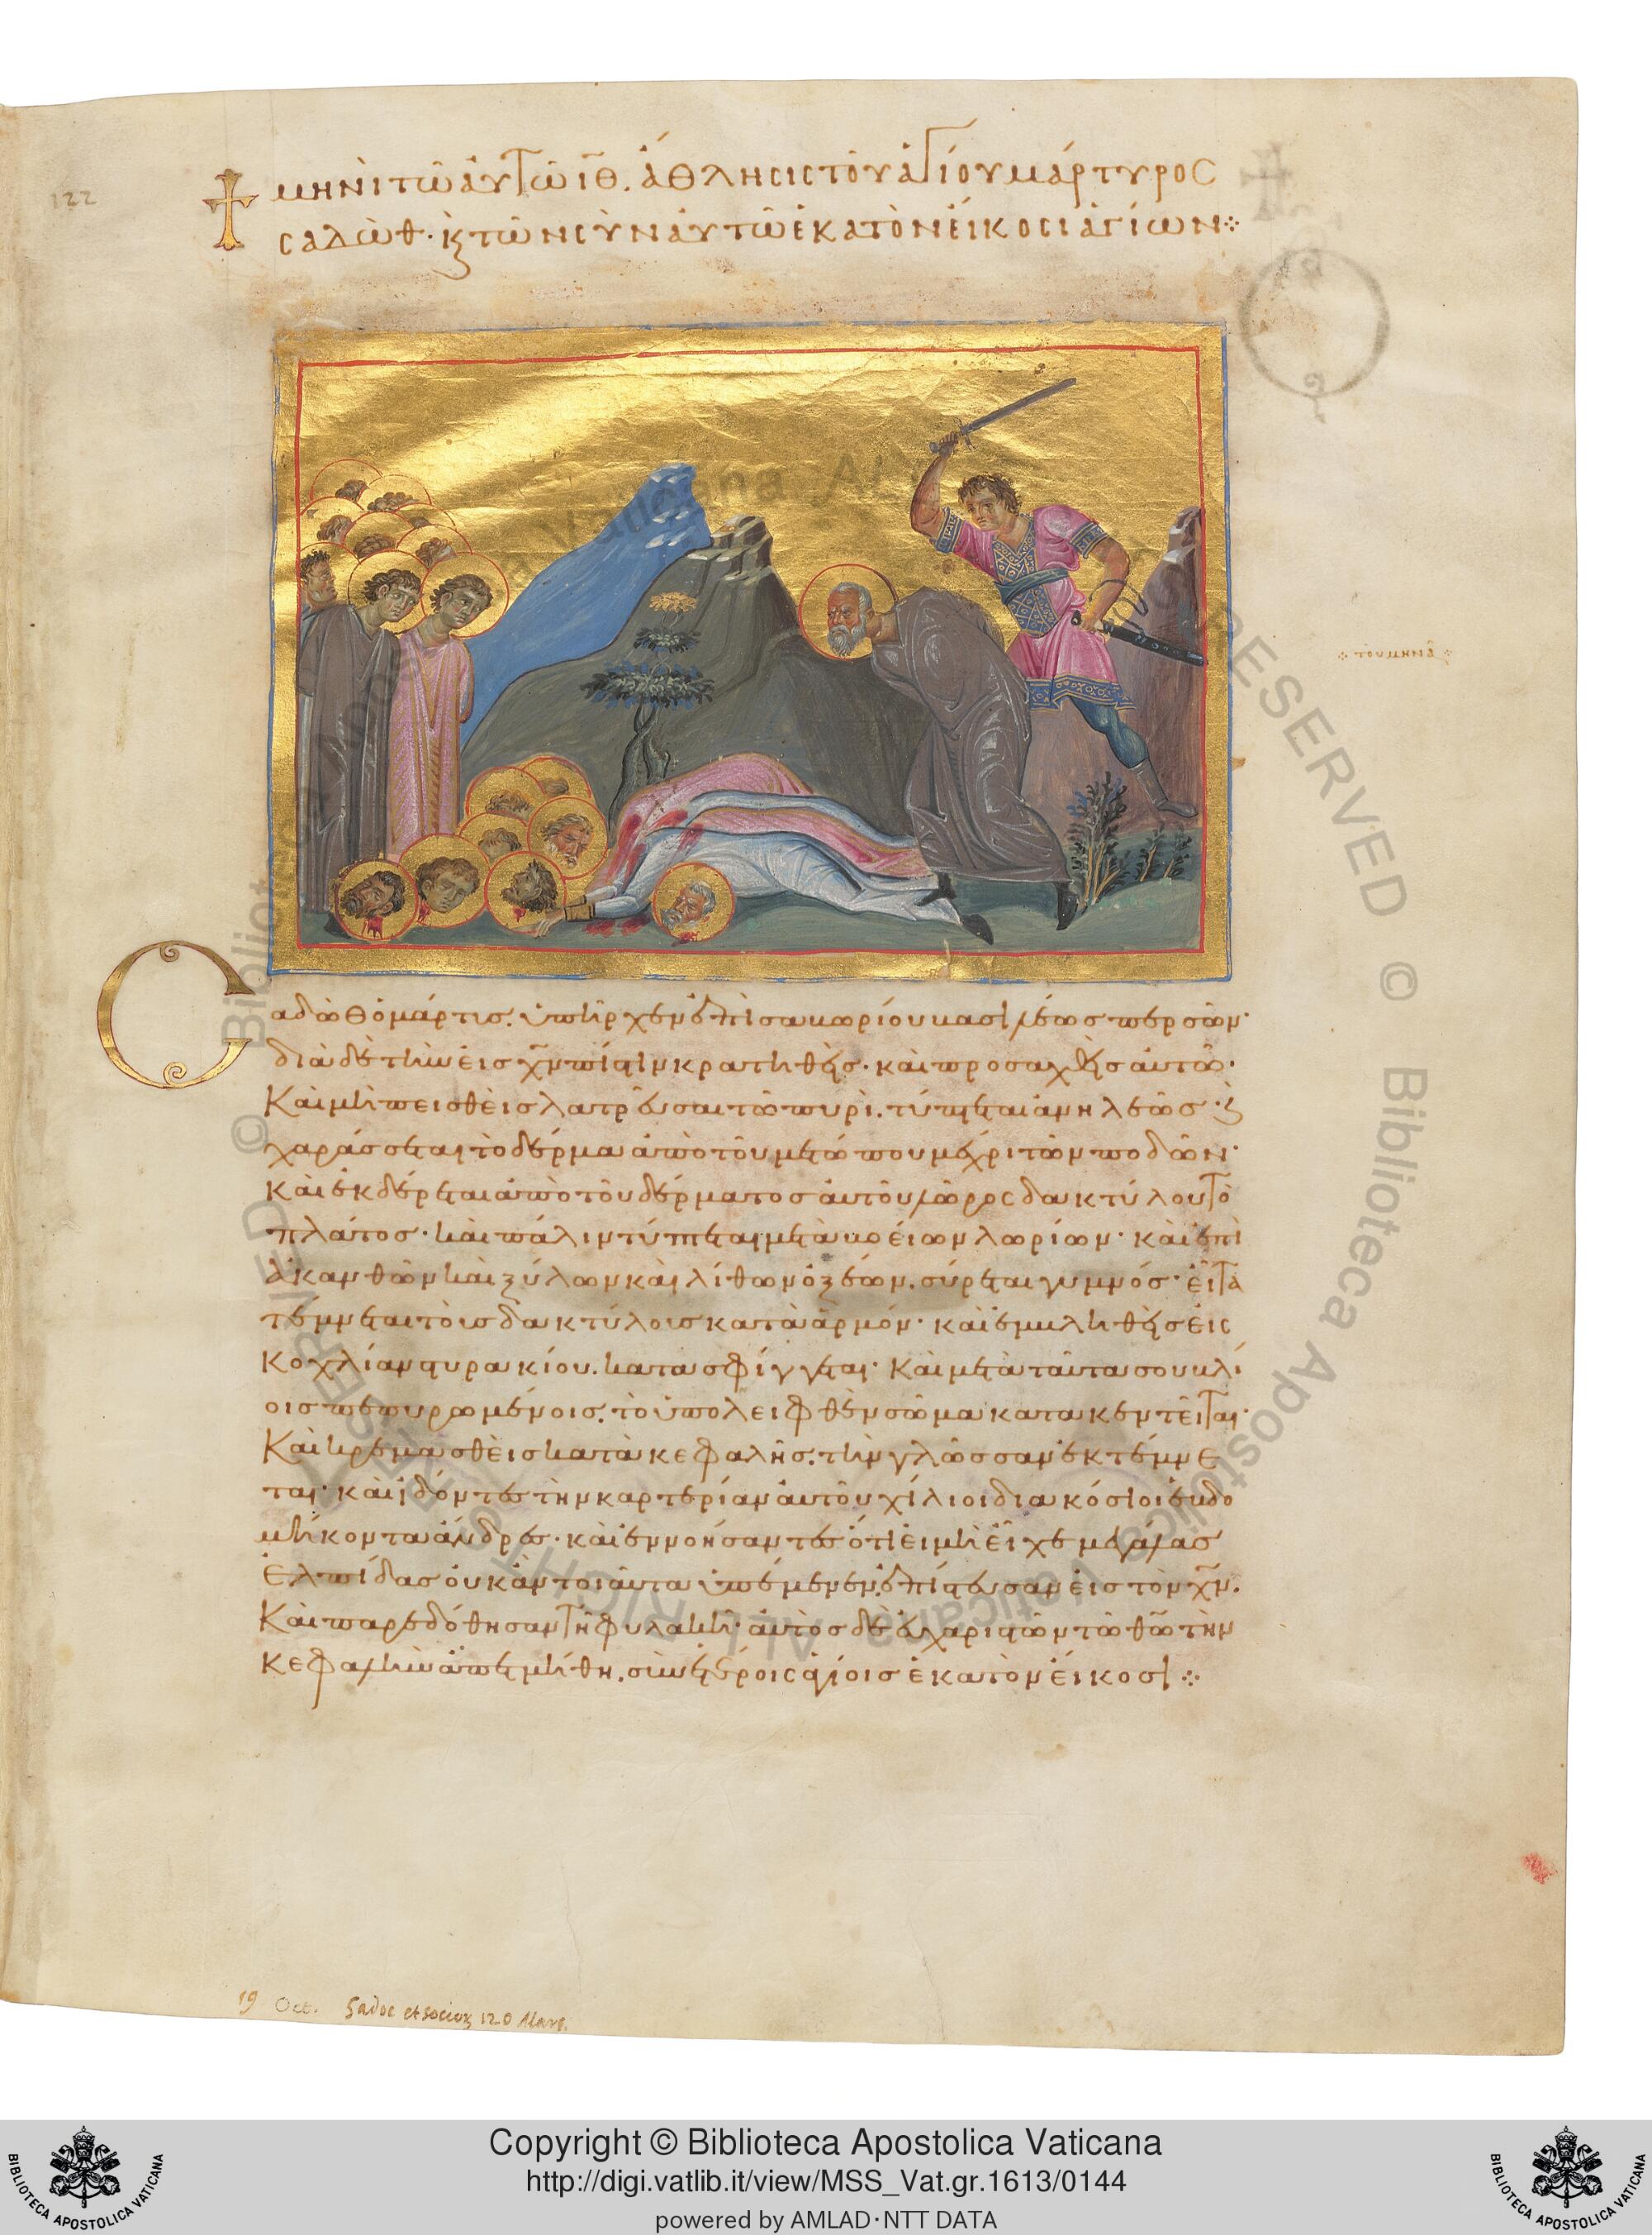 122
μηνὶ τῶ αὐτῶ ιθ. ἄθλησις τοῦ ἁγίου μάρτυρος
σαδὼθ· κ(αὶ) τῶν σὺν αὐτῶ ἑκατὸν εἴκοσι ἁγίων ⁘
Σαδὼθ ὁ μάρτυς, ὑπῆρχεν ἐπὶ σαπωρίου βασιλέως περσῶν·
διὰ δὲ τὴν εἰς χ̅ν πίστιν κρατηθεὶς· καὶ προσαχθεὶς αὐτῶ·
Καὶ μὴ πεισθεὶς λατρεῦσαι τῶ πυρὶ, τύπτεται ἀνηλεῶς· κ(αὶ)
χαράσσεται τὸ δέρμα ἀπὸ τοῦ μετώπου μέχρι τῶν ποδῶν·
Καὶ ἐκδέρεται ἀπὸ τοῦ δέρματος αὐτοῦ λῶρος δακτύλου τὸ
πλάτος· καὶ πάλιν τύπτεται μετὰ βοείων λωρίων· καὶ ἐπὶ
ἀκανθῶν καὶ ξύλων καὶ λίθων ὀξέων, σύρεται γυμνός· εἶτα
τέμνεται τοὺς δακτύλους κατὰ ἁρμόν· καὶ ἐμβληθεὶς εἰς
Κοχλίαν τυρακίου, κατασφίγγεται· Καὶ μετὰ ταῦτα σουβλί
οις πεπυρωμένοις, τὸ ὑπολειφθὲν σῶμα κατακεντεῖται·
Καὶ κρεμασθεὶς κατὰ κεφαλῆς, τὴν γλῶσσαν ἐκτέμνε
ται· καὶ ἰδόντες τὴν καρτερίαν αὐτοῦ χίλιοι διακόσιοι ἑβδο
μήκοντα ἄνδρες· καὶ ἐννοήσαντες ὅτι εἰ μὴ εἶχε μεγάλας
Ἐλπίδας οὐκ ἂν τοιαῦτα ὑπέμενεν, ἐπίστευσαν εἰς τὸν χ̅ν.
Καὶ παρεδόθησαν τῆ φυλακῆ· αὐτὸς δὲ εὐχαριστῶν τῶ θ̅ω τὴν
Κεφαλὴν ἀπετμήθη, σὺν ἑτέροις ἁγίοις ἑκατὸν εἴκοσι ⁘
19 Oct. Sadoc et socior 120 Mart.
Copyright © Biblioteca Apostolica Vaticana
http://digi.vatlib.it/view/MSS_Vat.gr.1613/0144
powered by AMLAD·NTT DATA
BIBLIOTECA APOSTOLICA VATICANA
BIBLIOTECA APOSTOLICA VATICANA